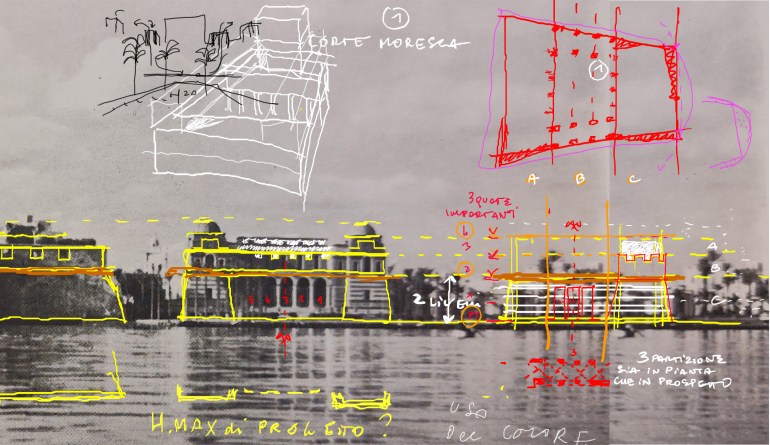 1
CORTE MORESCA
H2O
1
A B C
3 QUOTE
IMPORTANTI
6
3
A
2
B
2 LIVELLI
C
3 PARTIZIONE
SIA IN PIANTA
CHE IN PROSPETTO
H. MAX di PROGETTO ?
USO
DEL COLORE